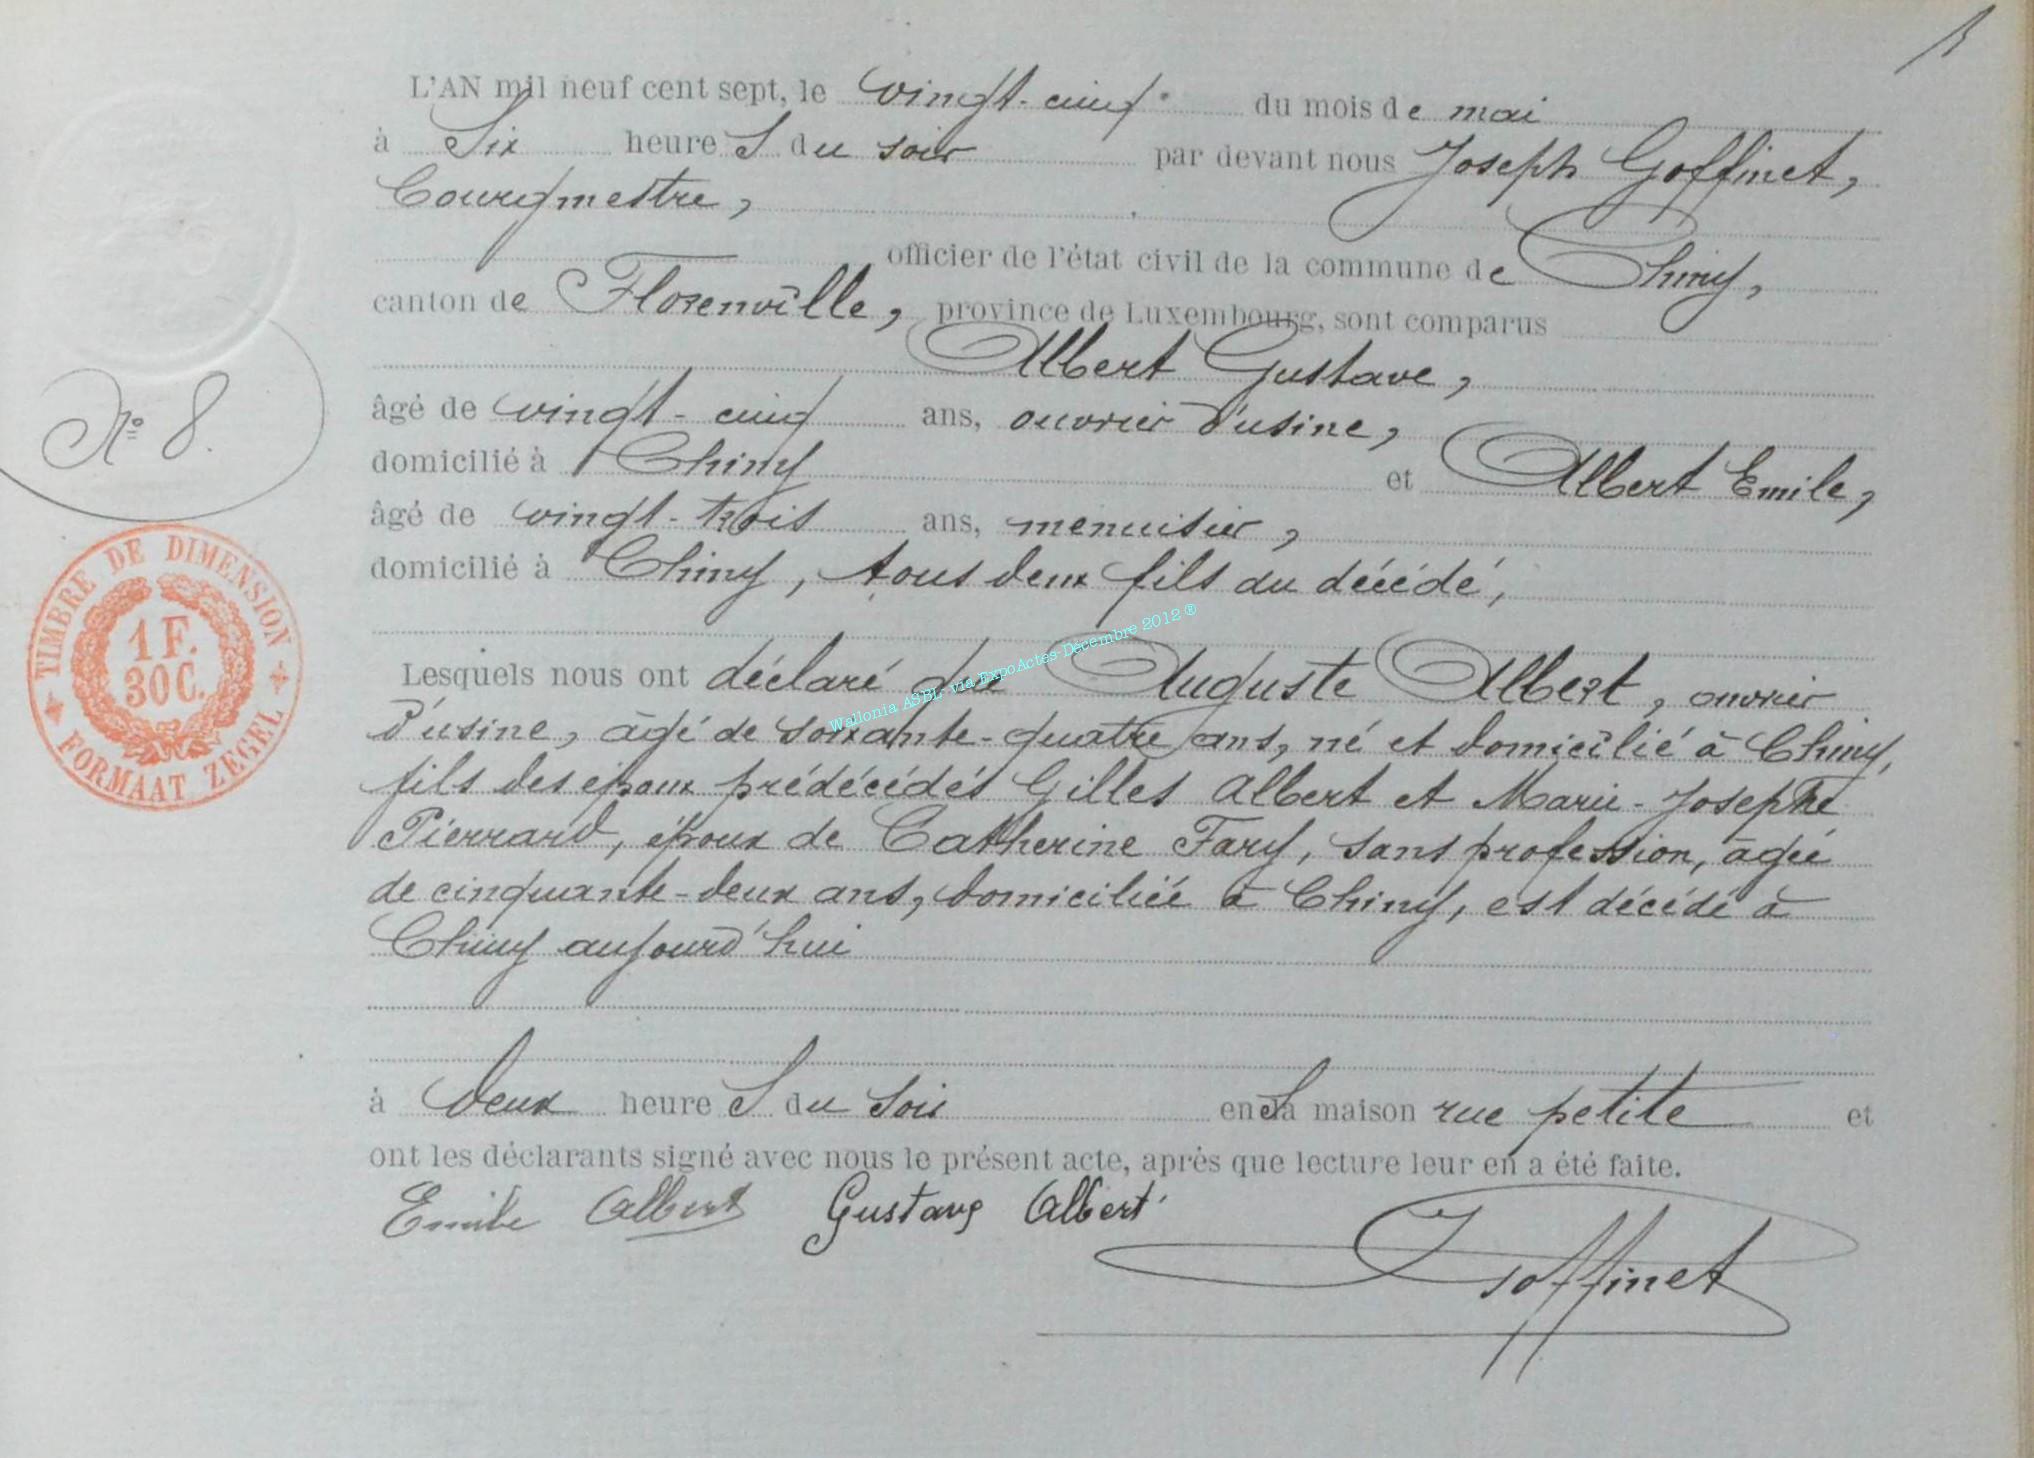 L'AN mil neuf cent sept, le vingt-cinq du mois de mai
à Six heures du soir par devant nous Joseph Goffinet,
Bourgmestre,
officier de l'état civil de la commune de Chiny,
canton de Florenville, province de Luxembourg, sont comparus
Albert Gustave,
N° 8.
âgé de vingt-cinq ans, ouvrier d'usine,
domicilié à Chiny et Albert Emile,
âgé de vingt-trois ans, menuisier,
domicilié à Chiny, tous deux fils du décédé,
TIMBRE DE DIMENSION
1 F.
30 C.
FORMAAT ZEGEL
Wallonia ASBL via ExpoActes-Décembre 2012 ®
Lesquels nous ont déclaré que Auguste Albert, ouvrier
d'usine, âgé de soixante-quatre ans, né et domicilié à Chiny,
fils des époux prédécédés Gilles Albert et Marie-Josephe
Pierrard, époux de Catherine Fary, sans profession, âgée
de cinquante-deux ans, domiciliée à Chiny, est décédé à
Chiny aujourd'hui
à deux heures du soir en sa maison rue petite et
ont les déclarants signé avec nous le présent acte, après que lecture leur en a été faite.
Emile Albert Gustave Albert
J Goffinet